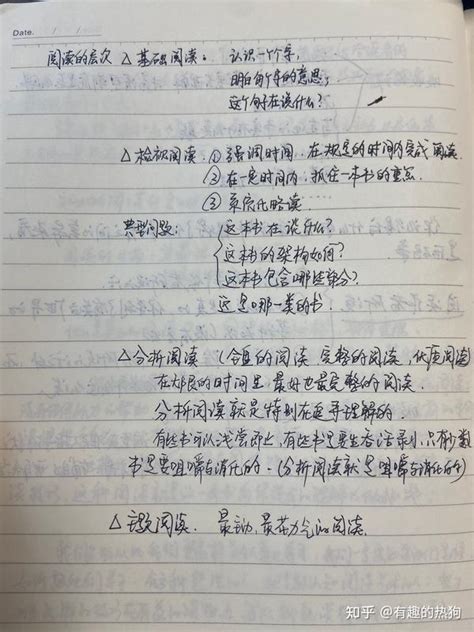 Date. / /
阅读的层次 △基础阅读: 认识一个个字,
明白每个字的意思,
这个句子在说什么?
△检视阅读: ①强调时间, 在规定的时间内完成阅读
②在一定时间内, 抓住一本书的重点
③系统化略读
典型问题: 这本书在谈什么?
这本书的架构如何?
这本书包含哪些部分?
这是哪一类的书.
△分析阅读 (全盘的阅读, 完整的阅读, 优质阅读)
在无限的时间里, 最好也最完整的阅读.
分析阅读就是特别在追寻理解的
有些书可以浅尝即止, 有些书是要生吞活剥, 只有少数
书是要咀嚼与消化的. (分析阅读就是咀嚼与消化的)
△主题阅读. 最主动, 最花力气的阅读.
知乎 @有趣的热狗